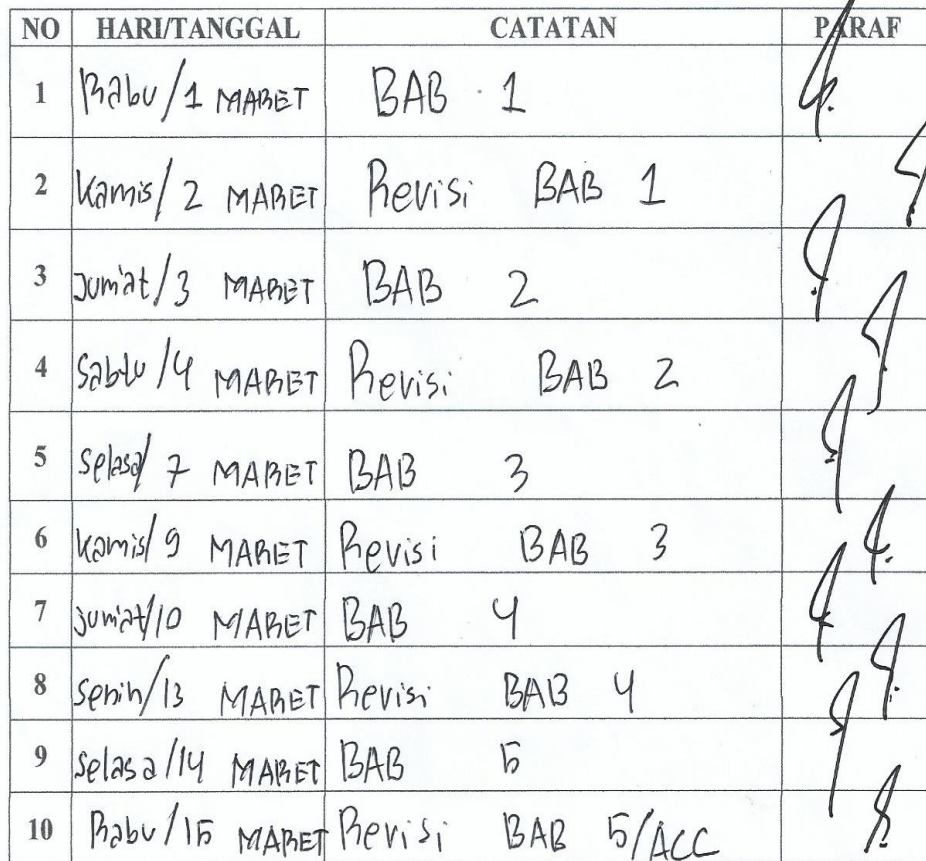 NO HARI/TANGGAL CATATAN PARAF
1 Rabu/1 MARET BAB 1
2 Kamis/2 MARET Revisi BAB 1
3 Jum'at/3 MARET BAB 2
4 Sabtu/4 MARET Revisi BAB 2
5 Selasa/7 MARET BAB 3
6 Kamis/9 MARET Revisi BAB 3
7 Jum'at/10 MARET BAB 4
8 Senin/13 MARET Revisi BAB 4
9 Selasa/14 MARET BAB 5
10 Rabu/15 MARET Revisi BAB 5/ACC